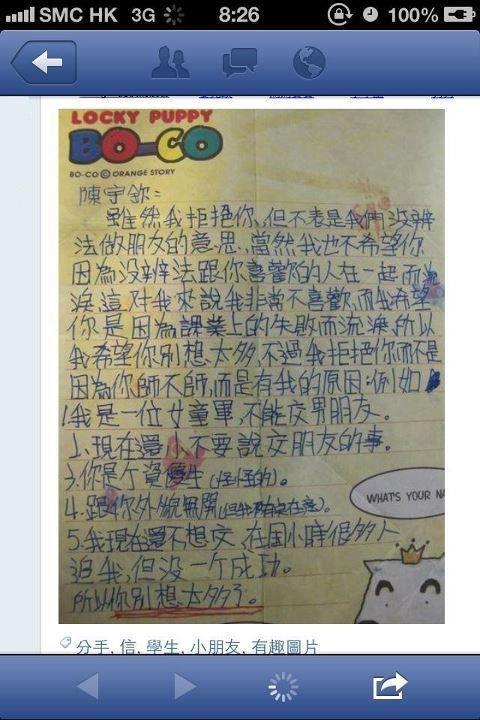 SMC HK 3G 8:26 100%
LOCKY PUPPY
BO-CO
BO-CO © ORANGE STORY
陳宇欽：
雖然我拒絕你、但不表是我們沒辨
法做朋友的意思、當然我也不希望你
因為沒辨法跟你喜歡的人在一起而流
淚這對我來說我非常不喜歡、而我希望
你是因為課業上的失敗而流淚、所以
我希望你別想太多、不過我拒絕你而不是
因為你師不師,而是有我的原因:例如
1.我是一位女童軍、不能交男朋友。
2、現在還小不要說交朋友的事。
3.你是个資優生(怪怪的)。
4.跟你外貌無關
5.我現在還不想交、在国小時很多人
追我,但没一个成功。
所以你別想太多了。
WHAT'S YOUR NA
分手, 信, 學生, 小朋友, 有趣圖片